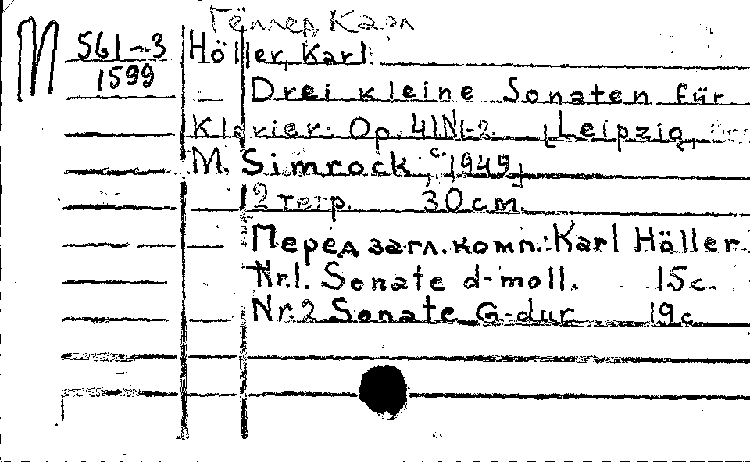 Гёллер Карл
М 561-3 Höller, Karl.
1599
Drei kleine Sonaten für
Klavier. Op. 41 N1-2. [Leipzig,
M. Simrock, c 1949]
2 тетр. 30 cm.
Перед загл. комп.: Karl Höller.
Nr.1. Sonate d-moll. 15 c.
Nr.2 Sonate G-dur 19 c